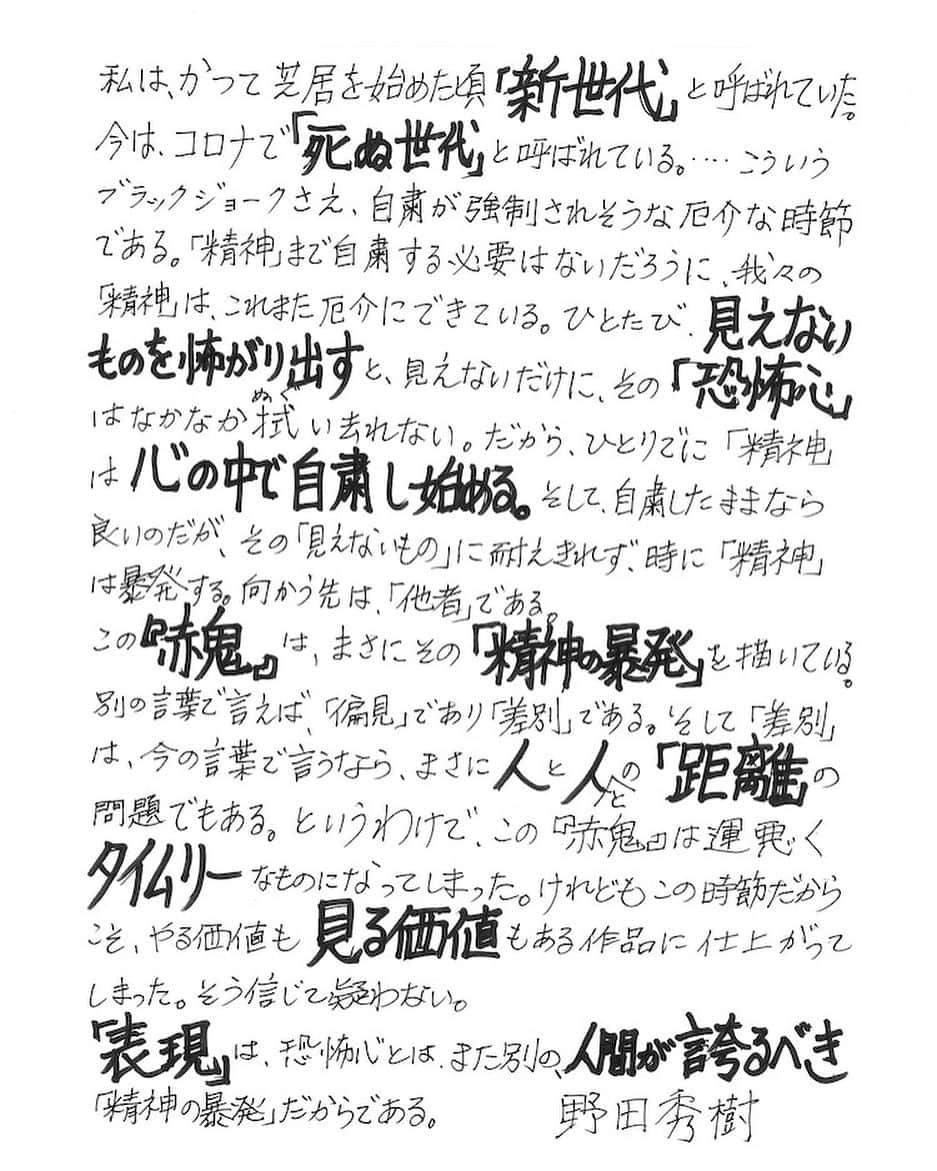 私は、かつて芝居を始めた頃「新世代」と呼ばれていた。
今は、コロナで「死ぬ世代」と呼ばれている。‥‥こういう
ブラックジョークさえ、自粛が強制されそうな厄介な時節
である。「精神」まで自粛する必要はないだろうに、我々の
「精神」は、これまた厄介にできている。ひとたび、見えない
ものを怖がり出すと、見えないだけに、その「恐怖心」
はなかなか拭い去れない。だから、ひとりでに「精神」
は心の中で自粛し始める。そして、自粛したままなら
良いのだが、その「見えないもの」に耐えきれず、時に「精神」
は暴発する。向かう先は、「他者」である。
この『赤鬼』は、まさにその「精神の暴発」を描いている。
別の言葉で言えば、「偏見」であり「差別」である。そして「差別」
は、今の言葉で言うなら、まさに人と人との「距離」の
問題でもある。というわけで、この『赤鬼』は運悪く
タイムリーなものになってしまった。けれどもこの時節だから
こそ、やる価値も見る価値もある作品に仕上がって
しまった。そう信じて疑わない。
「表現」は、恐怖心とは、また別の、人間が誇るべき
「精神の暴発」だからである。 野田秀樹